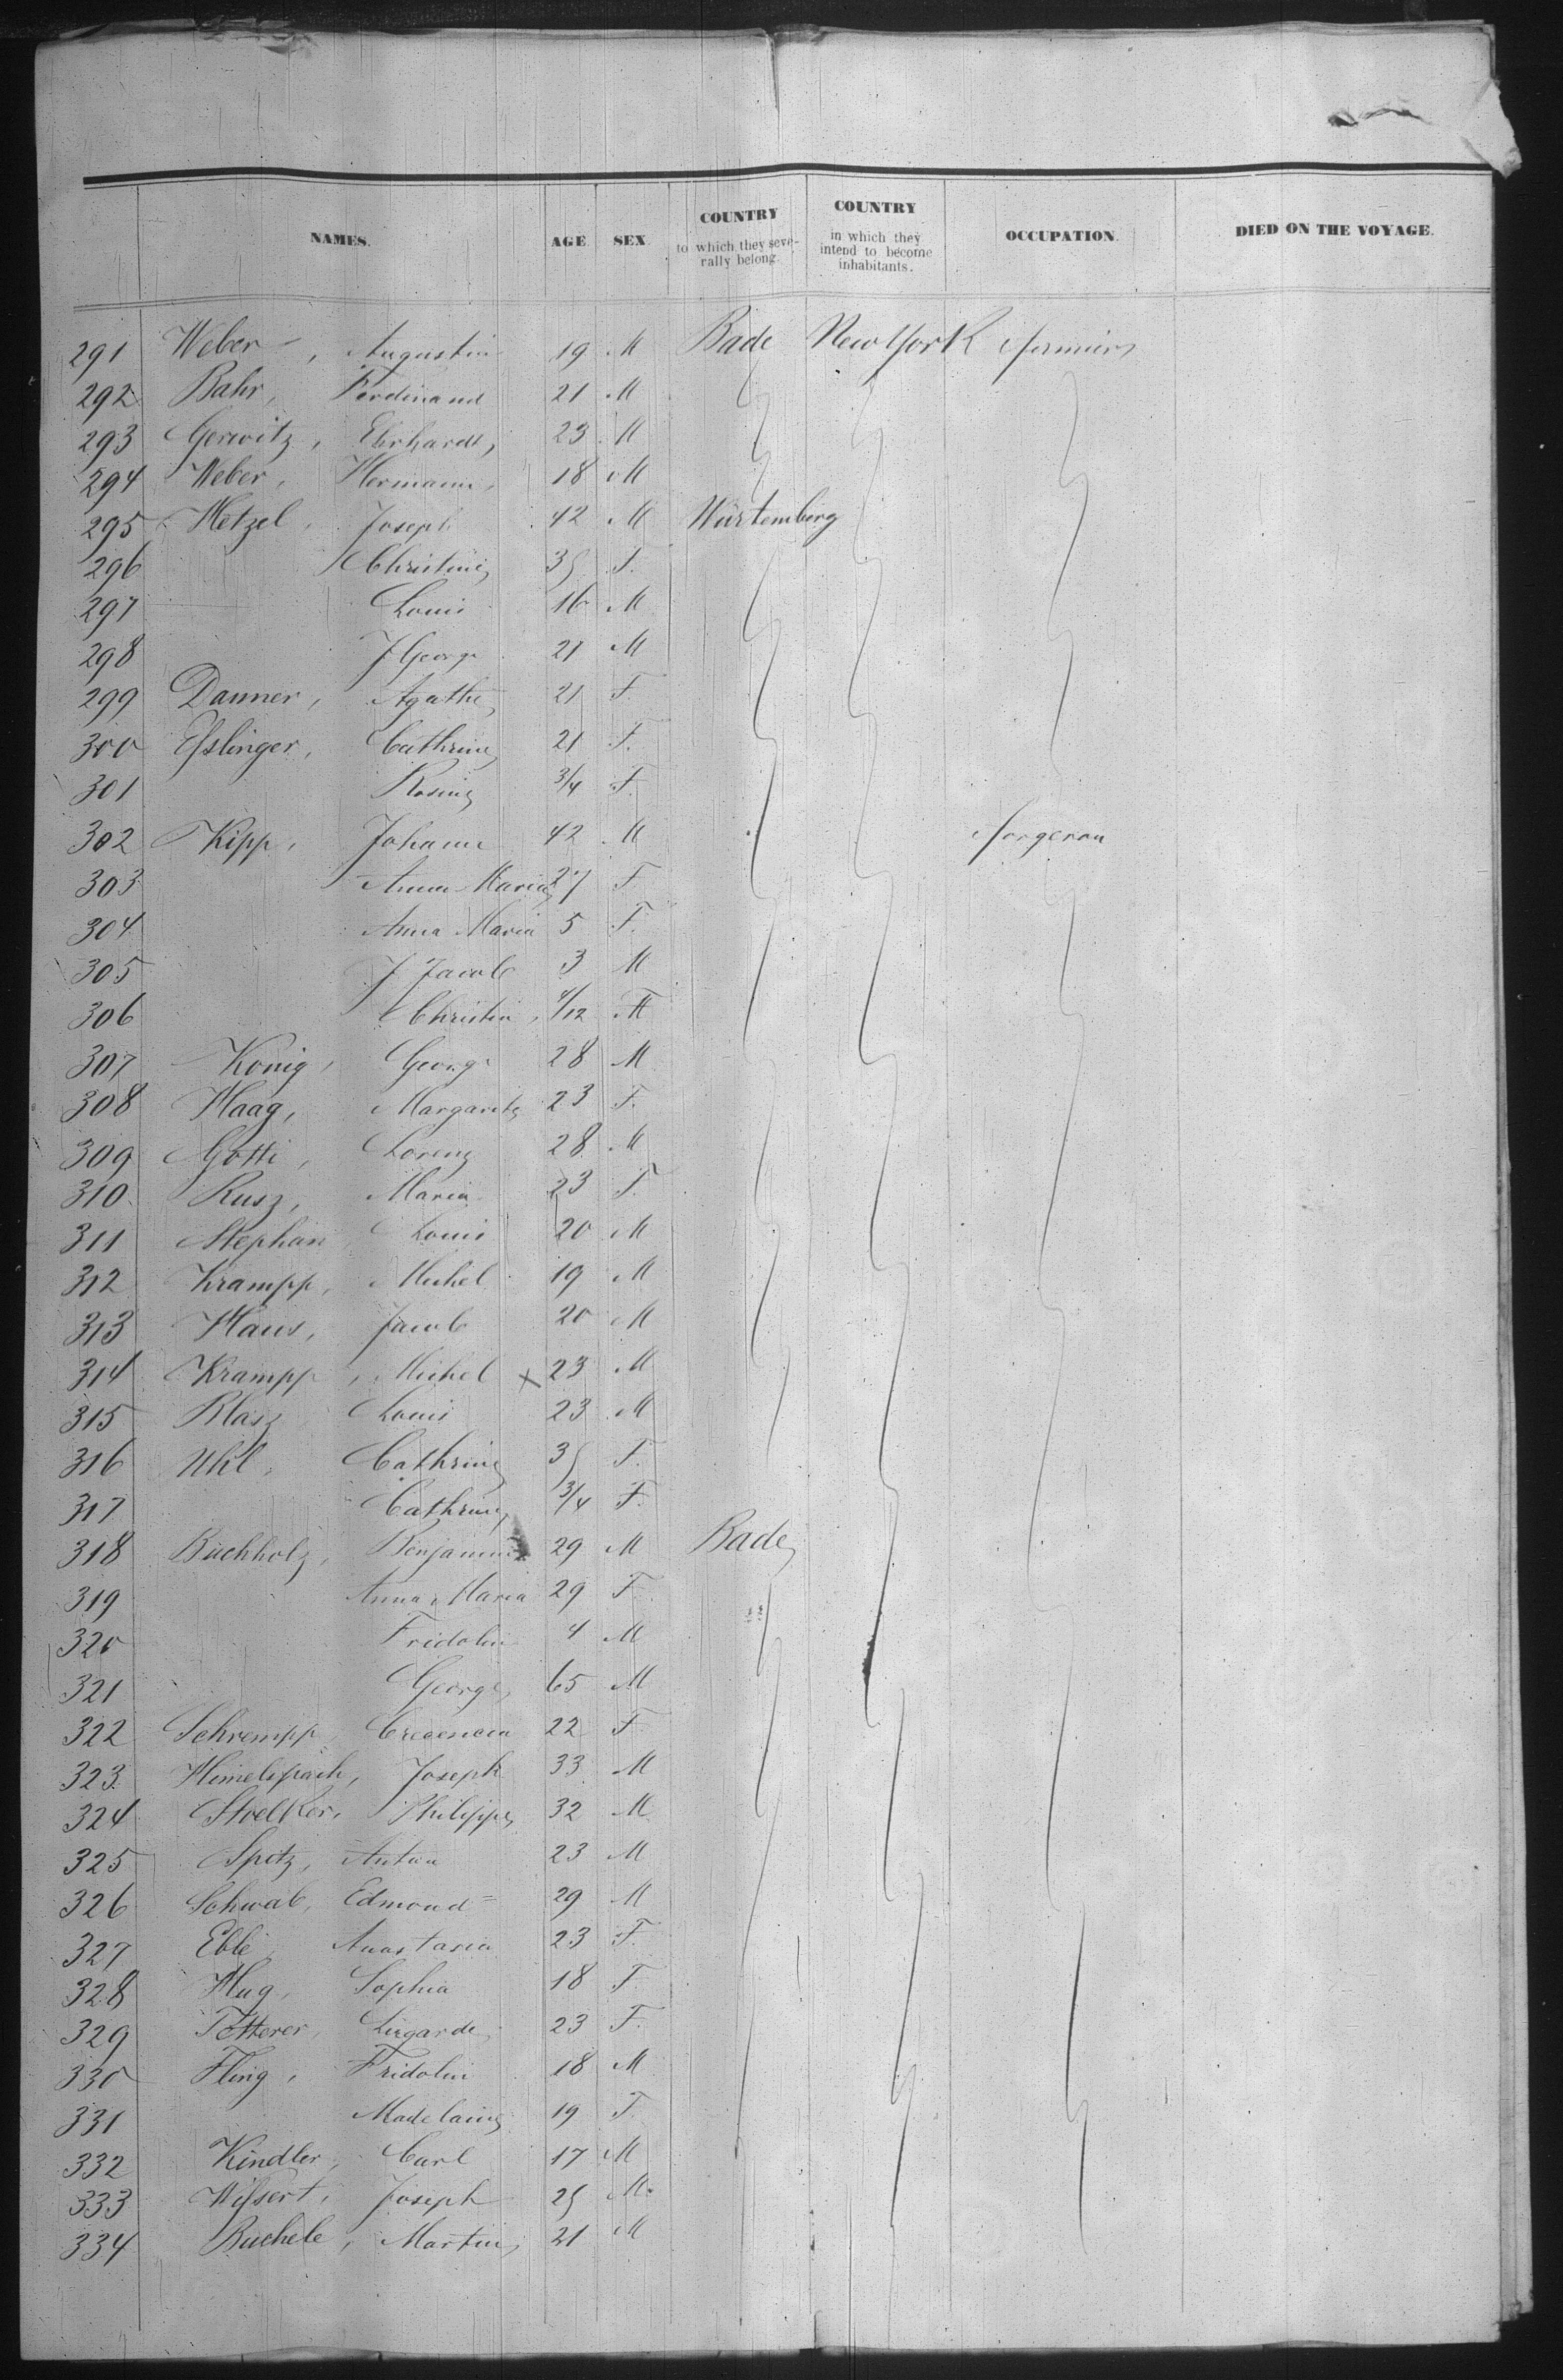 NAMES. AGE SEX COUNTRY to which they severally belong. COUNTRY in which they intend to become inhabitants. OCCUPATION. DIED ON THE VOYAGE.
291 Weber, Augustin 19 M Bade New York
292 Bahr, Ferdinand 21 M
293 Gerwitz, Ehrhardt, 23 M
294 Weber, Hermann, 18 M
295 Metzel, Joseph 42 M Würtemberg
296 Christine 35 F.
297 Louis 16 M
298 J George 21 M
299 Danner, Agathe 21 F.
300 Esslinger, Cathrine 21 F.
301 Rosine 3/4 F.
302 Kipp, Johann 42 M forgeron
303 Anna Maria 27 F
304 Anna Maria 5 F.
305 J Jacob 3 M
306 Christin, /12
307 König, George 28 M
308 Haag, Margarite 23 F.
309 Gotti, Lorenz 28 M
310 Rusz, Maria 23 F.
311 Stephan Louis 20 M
312 Krampp, Michel 19 M
313 Haus, Jacob 20 M
314 Krampp, Michel x 23 M
315 Blasz Louis 23 M
316 Uhl, Cathrine 35 F.
317 Cathrine 3/4 F.
318 Buchholz, Benjamin 29 M Bade
319 Anna Maria 29 F.
320 Fridolin 4 M
321 George, 65 M
322 Schrempp, Crecencia 22 F
323 Himelspach, Joseph 33 M
324 Stoelker, Philippe 32 M
325 Spitz, Anton 23 M
326 Schwab, Edmond 29 M
327 Eble Anastasia 23 F.
328 Hug, Sophia 18 F
329 Fetterer, Lugarde 23 F.
330 Fling, Fridolin 18 M
331 Madelaine 19 F.
332 Kindler, Carl 17 M
333 Wissert, Joseph 25 M.
334 Buchele, Martin, 21 M